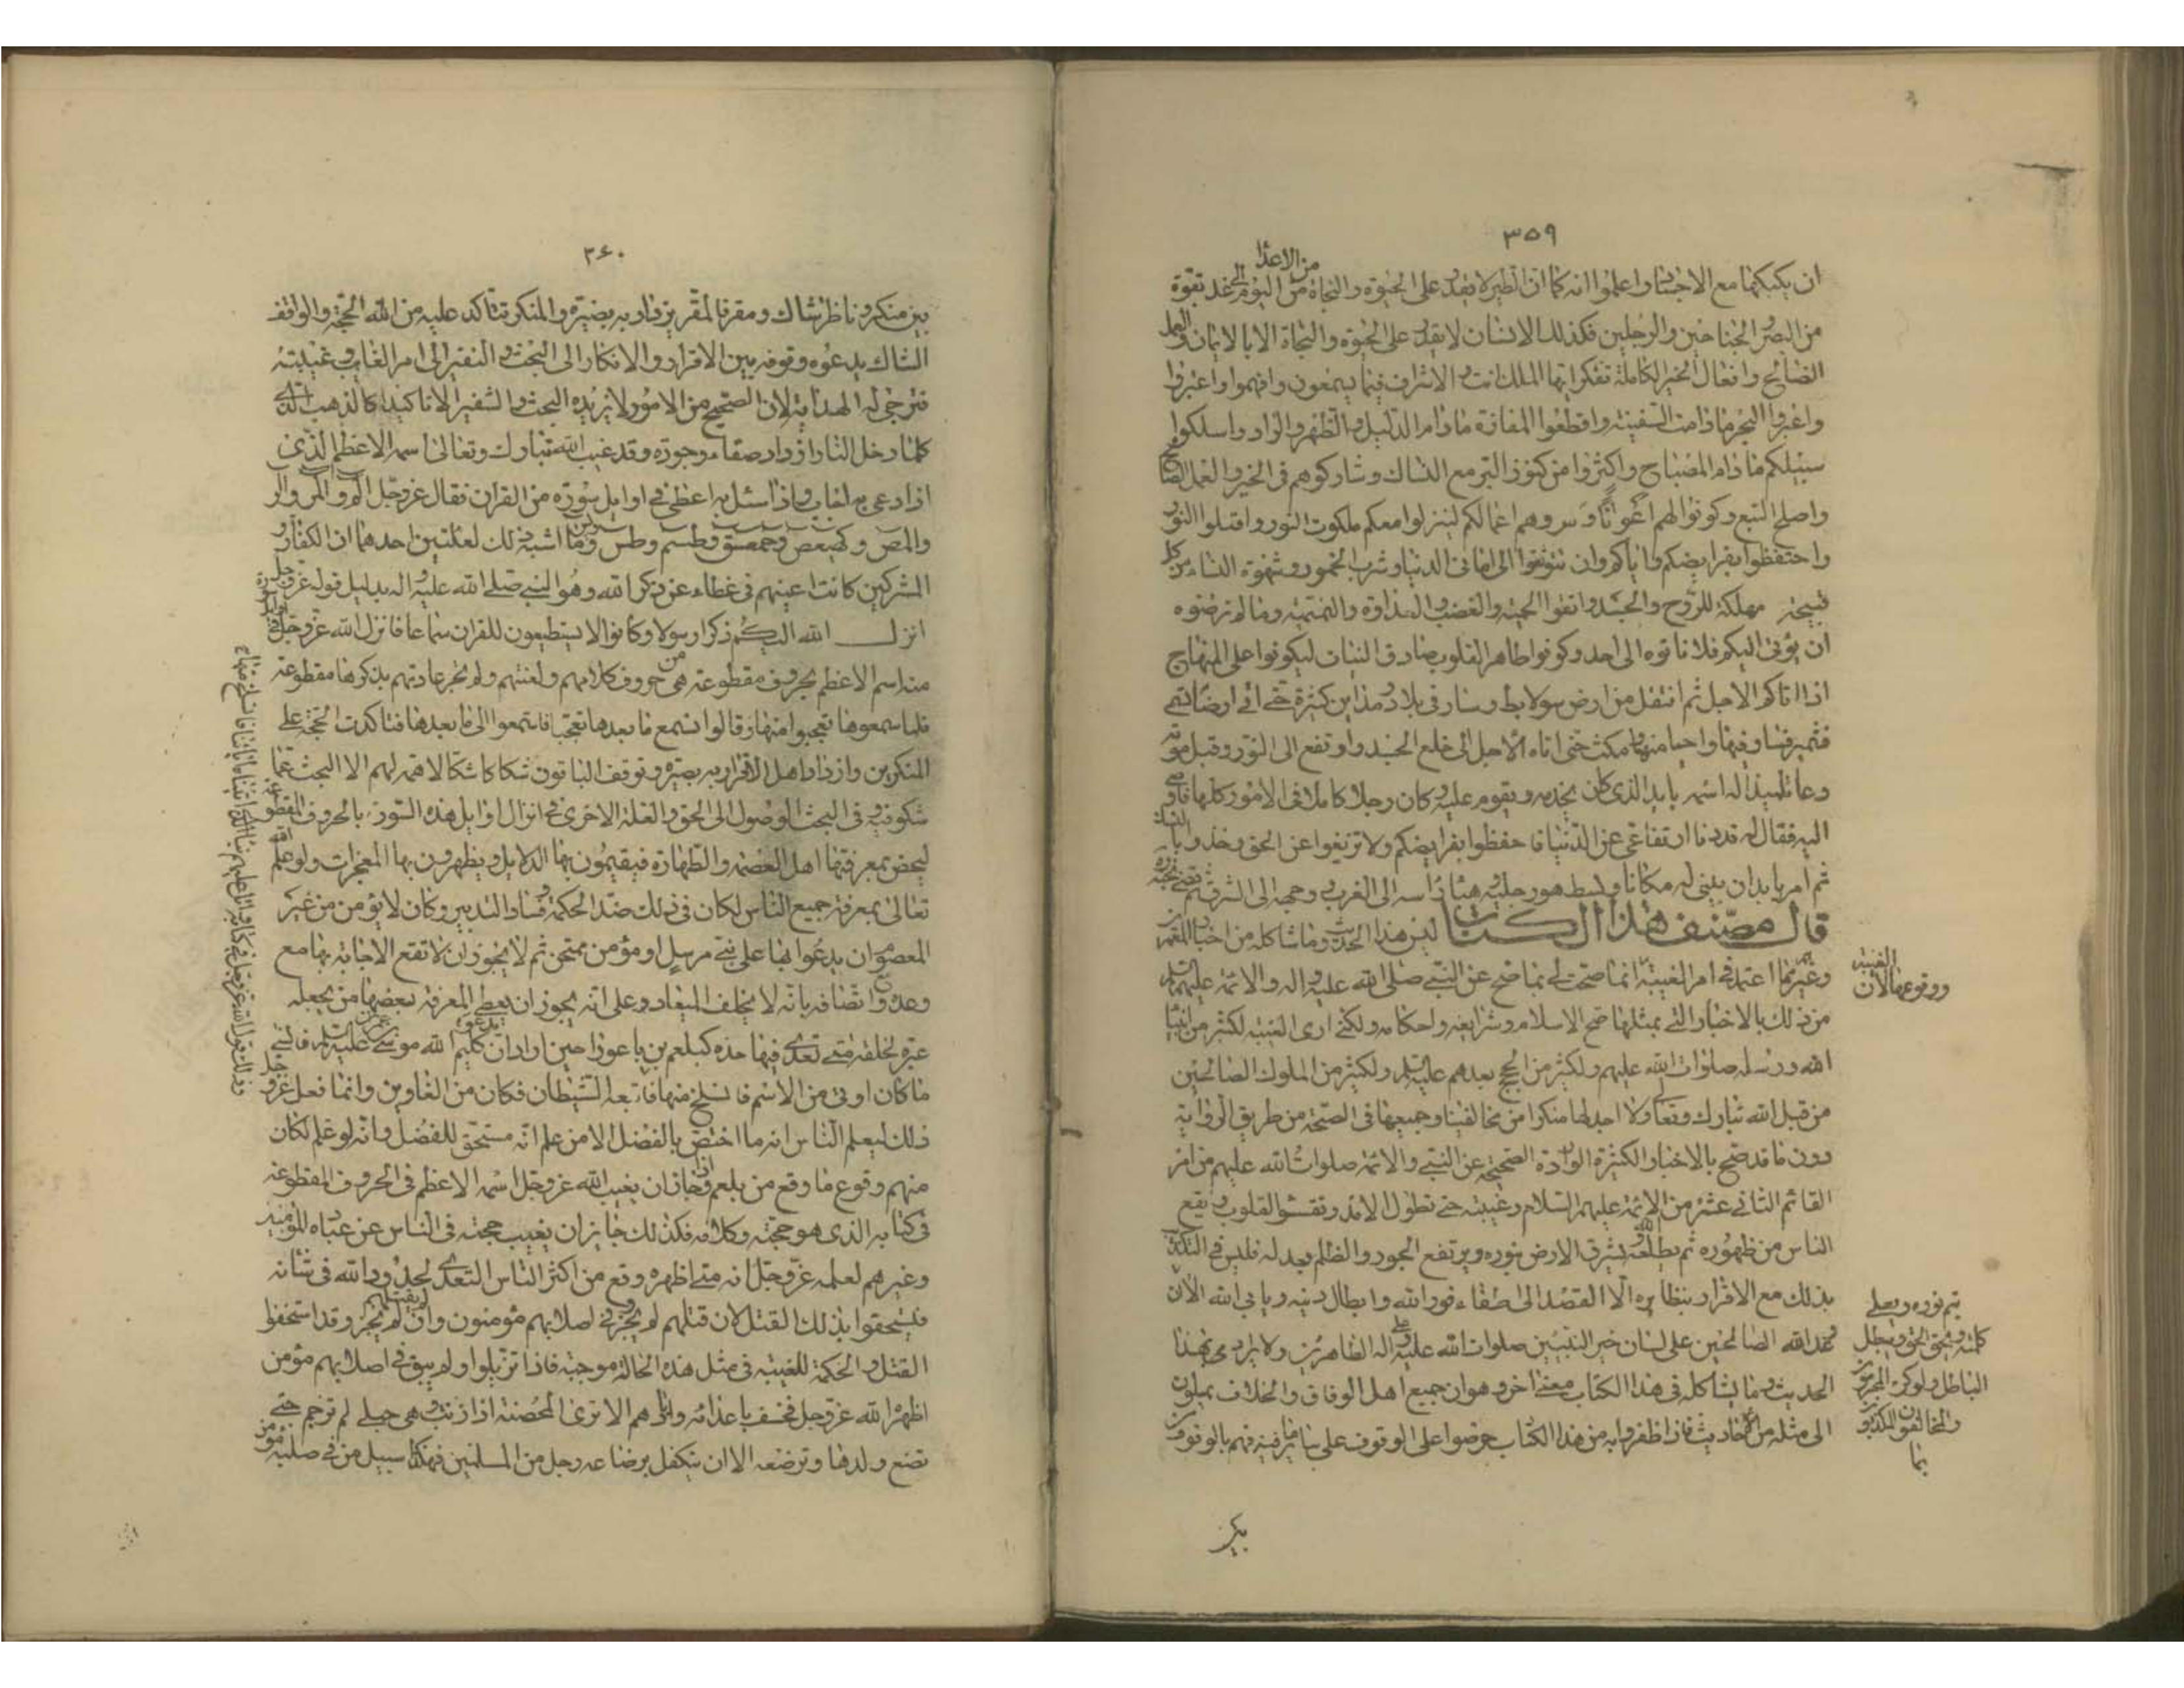 ٣٥٩
من الاعدا
ان يكبكبها مع الاخشاب واعلموا انه كما ان الطير لا يقدر على الحيوة والنجاة من اليوم الى غد بقوة
من البصر والجناحين والرجلين فكذلك الانسان لا يقدر على الحيوة والنجاة الا بالايمان والعمل
الصالح وافعال الخير الكاملة تفكر ايها الملك انت والاشراف فيما يسمعون وافهموا واعبروا
واعبروا البحر ما دامت السفينة واقطعوا المفازة ما دام الدليل والظهر والزاد واسلكوا
سبيلكم ما دام المصباح واكثروا من كنوز البر مع النساك وشاركوهم فى الخير والعمل الصالح
واصلح التبع وكونوا لهم اعوانا وسروهم اعمالكم لينزلوا معكم ملكوت النور واقبلوا النور
واحتفظوا بفرايضكم واياكم وان تتوثقوا الى امانى الدنيا وشرب الخمور وشهوة النساء من كل
قبيحة مهلكة للروح والجسد واتقوا الحمية والغضب والعداوة والنميمة وما لم ترضوه
ان يؤتى اليكم فلا تاتوه الى احد وكونوا طاهر القلوب صادق النيات ليكونوا على المنهاج
اذا اتاكم الاجل ثم انتقل من ارض سولابط وسار فى بلاد ومداين كثيرة حتى اتى ارضا تسمى
قشمير فسار فيها واحيا منها ومكث حتى اتاه الاجل الى خلع الجسد وارتفع الى النور وقبل موته
دعا تلميذا له اسمه يابد الذى كان يخدمه ويقوم عليه وكان رجلا كاملا فى الامور كلها فاوصى
اليه فقال له قد دنا ارتفاعى عن الدنيا فاحفظوا بفرايضكم ولا تزيغوا عن الحق وخذوا بالنسك
ثم امر يابد ان يبنى له مكانا وبسط هو رجليه هيئا راسه الى الغرب ووجهه الى الشرق ثم قضى نحبه
قال مصنف هذا الكتاب ليس هذا الحديث وما شاكله من اخبار المعمرين
وغيرهم مما اعتمده فى امر الغيبة انما صحت لى بما صح عن النبى صلى الله عليه واله والائمة عليهم السلم
الغيبة
ووقوعها لان
من ذلك بالاخبار التى بمثلها صح الاسلام وشرايعه واحكامه ولكنى ارى الغيبة لكثير من انبيا
الله ورسله صلوات الله عليهم ولكثير من الحجج بعدهم عليهم السلم ولكثير من الملوك الصالحين
من قبل الله تبارك وتعالى ولا اجد لها منكرا من مخالفينا وجميعها فى الصحة من طريق الرواية
دون ما قد صح بالاخبار الكثيرة الواردة الصحيحة عن النبى والائمة صلوات الله عليهم من امر
القائم الثانى عشر من الائمة عليهم السلام وغيبته حتى تطول الامد وتقسو القلوب ويقع
الناس من ظهوره ثم يطلعه الله فيشرق الارض بنوره ويرتفع الجور والظلم بعدله فليس فى التكذيب
بذلك مع الاقرار بنظايره الا القصد الى اطفاء نور الله وابطال دينه ويابى الله الا ان
يتم نوره ويعلى
كلمته ويحق الحق ويبطل
الباطل ولو كره المجرمون
والمخالفون المكذبون
بما
وعد الله الصالحين على لسان خير النبيين صلوات الله عليه وعلى اله الطاهرين ولا يرادى بهذا
الحديث وما يشاكله فى هذا الكتاب معنى اخر وهو ان جميع اهل الوفاق والخلاف يميلون
الى مثله من الاحاديث فاذا ظفروا به من هذا الكتاب حرصوا على الوقوف على ساير ما فيه فهم بالوقوف
٣٦٠
بين منكر وناظر شاك ومقر فالمقر يزداد به بصيرة والمنكر تتاكد عليه من الله الحجة والواقف
الشاك يدعوه وقوفه بين الاقرار والانكار الى البحث والتنقير الى امر الغايب وغيبته
فترجى له الهداية لان الصحيح من الامور لا يزيده البحث والتنقير الا تاكيدا كالذهب الذى
كلما دخل النار ازداد صفاء وجودة وقد غيب الله تبارك وتعالى اسمه الاعظم الذى
اذا دعى به اجاب واذا سئل به اعطى فى اوايل سورة من القران فقال عز وجل الم والمر والر
والمص وكهيعص وحمعسق وطسم وطس ويس وما اشبه ذلك لعلتين احدهما ان الكفار و
المشركين كانت اعينهم فى غطاء عن ذكر الله وهو النبى صلى الله عليه واله بدليل قوله عز وجل
انزل الله اليكم ذكرا رسولا وكانوا لا يستطيعون للقران سماعا فانزل الله عز وجل
منه اسمه الاعظم بحروف مقطوعة هى من حروف كلامهم ولغتهم ولم تجر عادتهم بذكرها مقطوعة
فلما سمعوها تعجبوا منها وقالوا نسمع ما بعدها تعجبا فاستمعوا الى ما بعدها فتاكدت الحجة على
المنكرين وازداد اهل الاقرار به بصيرة وتوقف الباقون شكاكا لا همة لهم الا البحث عما
شكوا فيه وفى البحث الوصول الى الحق والعلة الاخرى فى انزال اوايل هذه السور بالحروف المقطوعة
ليخص بمعرفتها اهل العصمة والطهارة فيقيمون بها الدلايل ويظهرون بها المعجزات ولو عم الله
تعالى بمعرفته جميع الناس لكان فى ذلك ضد الحكمة وفساد التدبير وكان لا يؤمن من غير
المعصوم ان يدعوا بها على نبى مرسل او مؤمن ممتحن ثم لا يجوز ان لا تقع الاجابة بها مع
وعده واتصافه بانه لا يخلف الميعاد وعلى انه يجوز ان يعطى المعرفة بعضها من يجعله
عبرة لخلقه متى تعدى فيها حده كبلعم بن باعورا حين اراد ان يدعو على كليم الله موسى بن عمران عليه السلم فانسى
ما كان اوتى من الاسم فانسلخ منها فاتبعه الشيطان فكان من الغاوين وانما فعل عز وجل
وذلك قول الله عز وجل فى كتابه واتل عليهم نبا الذى اتيناه اياتنا فانسلخ منها
ذلك ليعلم الناس انه ما اختص بالفضل الا من علم انه مستحق للفضل وانه لو عم لكان
منهم وقوع ما وقع من بلعم واذا جاز ان يغيب الله عز وجل اسمه الاعظم فى الحروف المقطوعة
فى كتابه الذى هو حجته وكلامه فكذلك جايز ان يغيب حجته فى الناس عن عباده المؤمنين
وغيرهم لعلمه عز وجل انه متى اظهره وقع من اكثر الناس التعدى لحدود الله فى شانه
فيستحقوا بذلك القتل لان قتلهم لم يجز وفى اصلابهم مؤمنون وان لم يقتلهم لم يجز وقد استحقوا
القتل والحكمة للغيبة فى مثل هذه الحالة موجبة فاذا تزيلوا ولم يبق فى اصلابهم مؤمن
اظهره الله عز وجل فخسف باعدائه وابادهم الا ترى المحصنة اذا زنت وهى حبلى لم ترجم حتى
تضع ولدها وترضعه الا ان يتكفل برضاعه رجل من المسلمين فهكذا سبيل من فى صلبه مؤمن